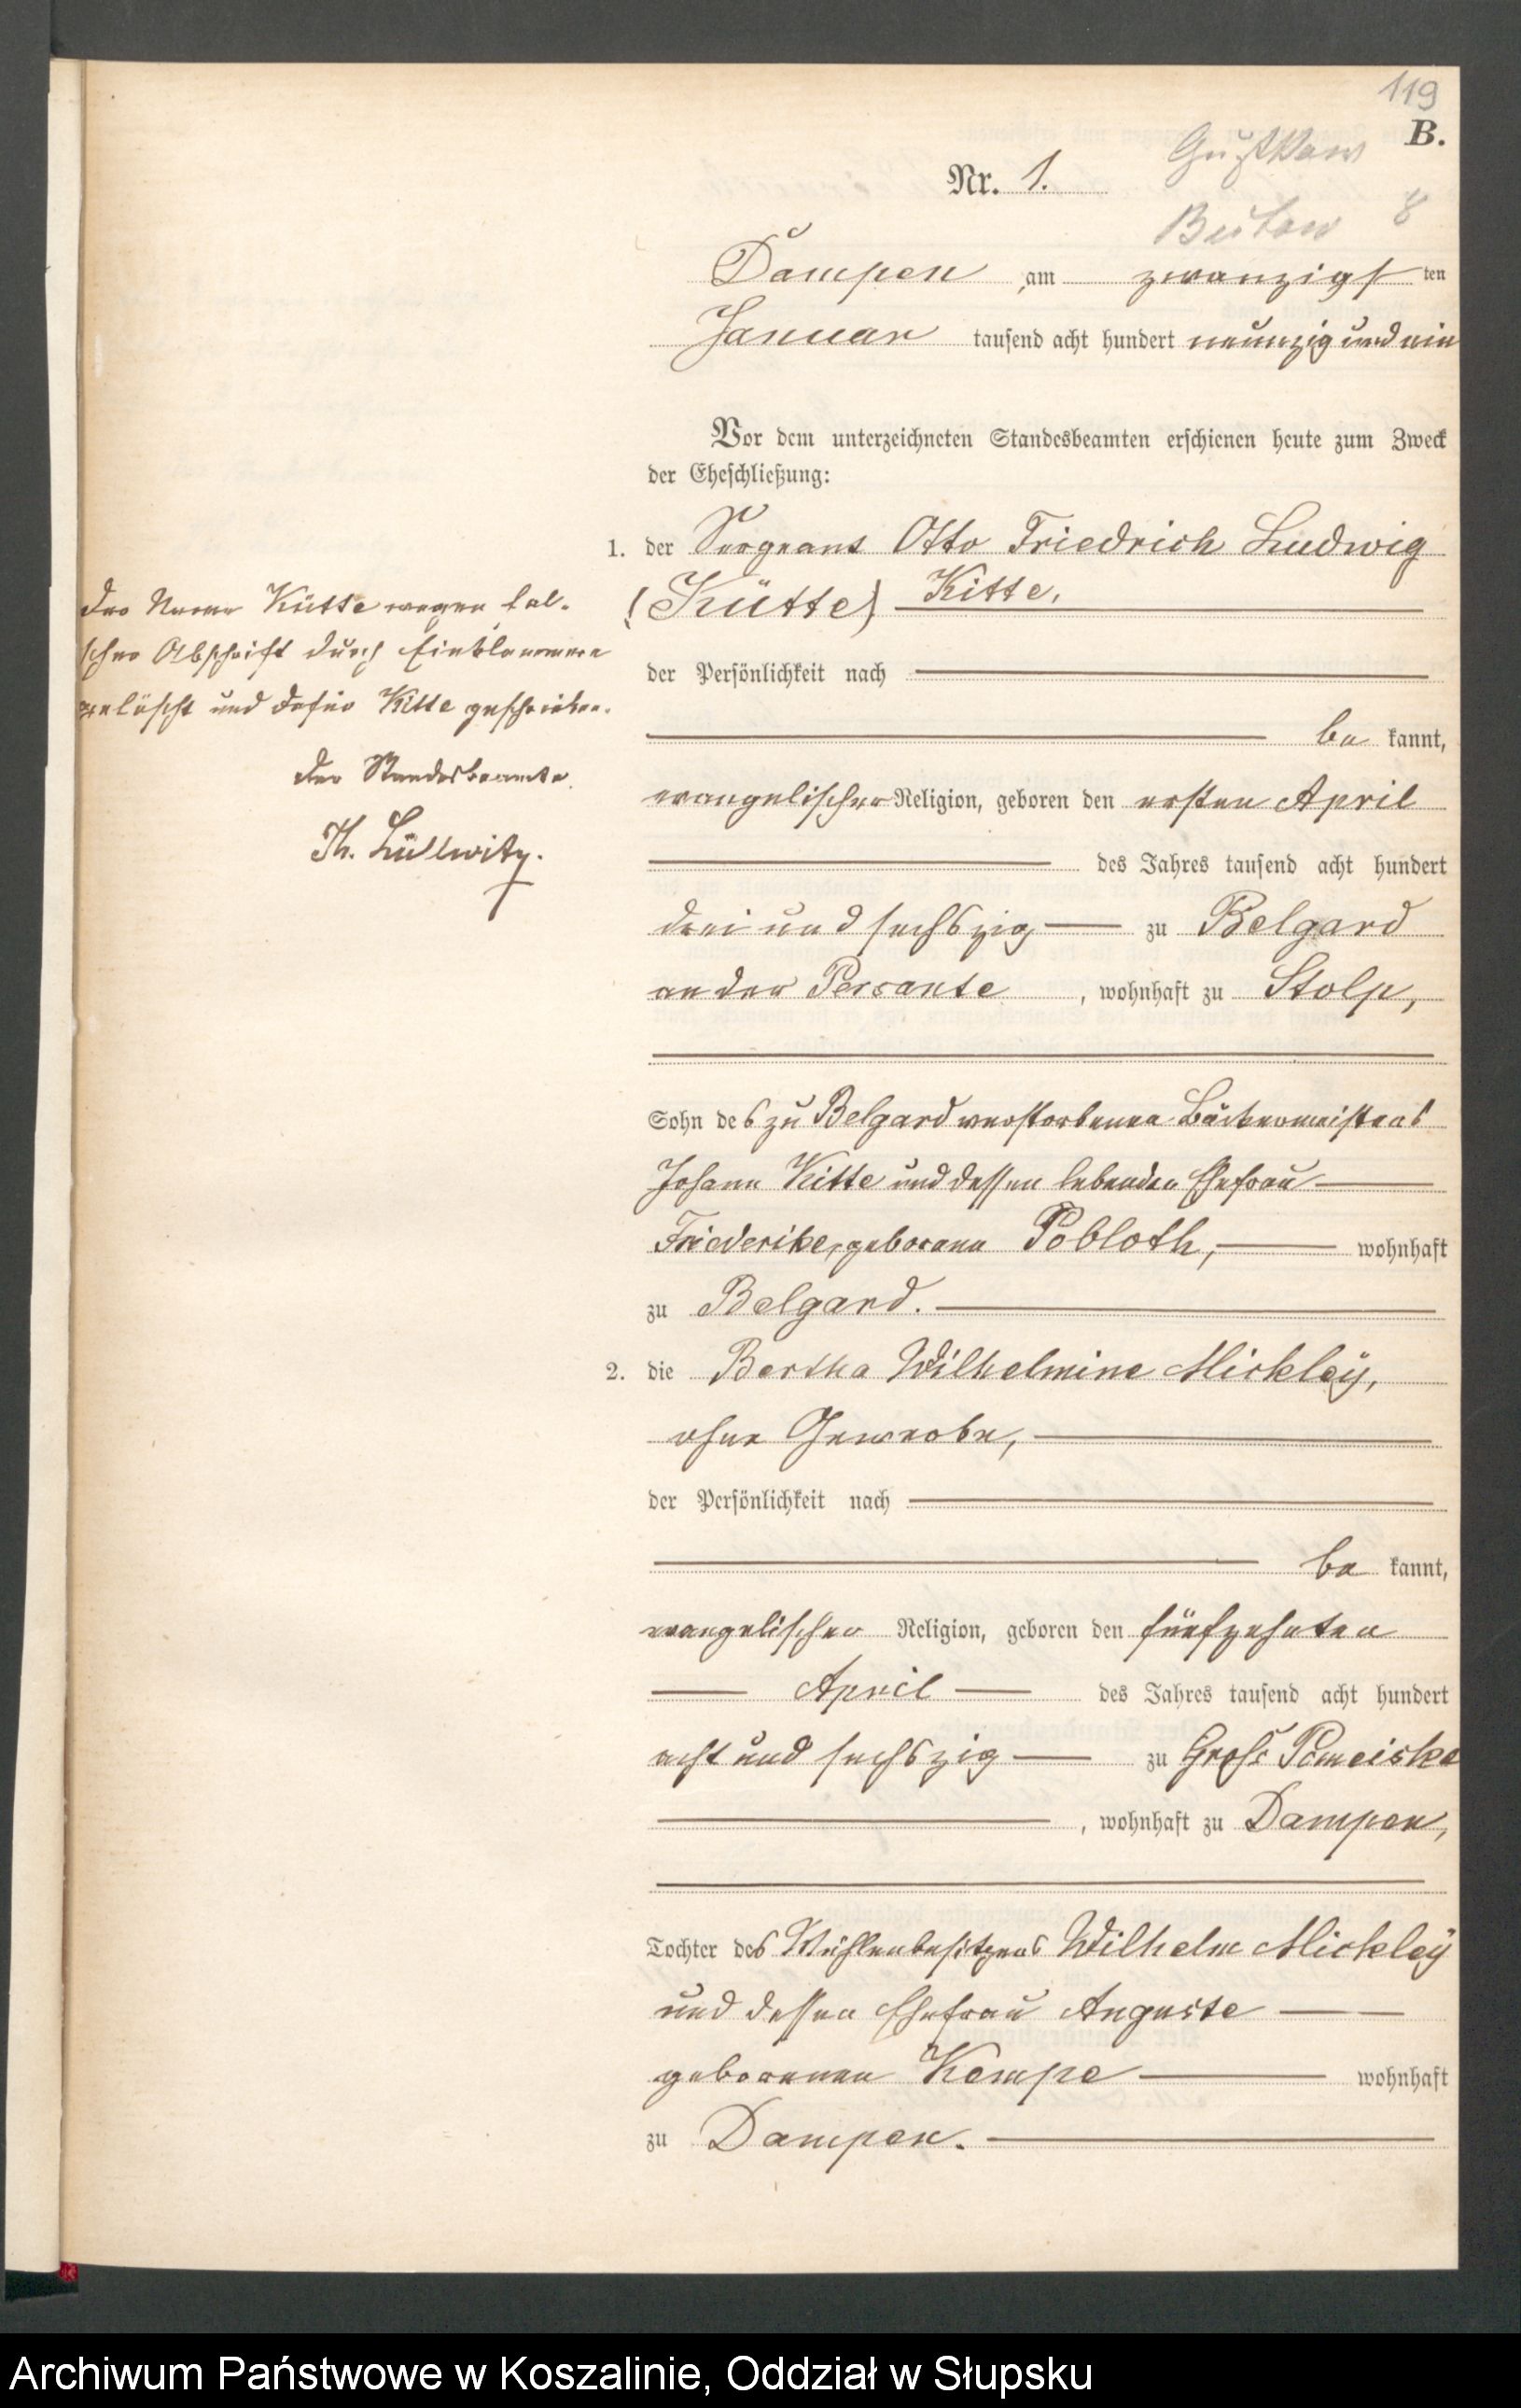 119
B.
Nr. 1.
Bütow 8
Dampen, am zwanzigsten
Januar tausend acht hundert neunzig und ein
Vor dem unterzeichneten Standesbeamten erschienen heute zum Zweck
der Eheschließung:
1. der Sergeant Otto Friedrich Ludwig
(Kütte) Kitte,
der Persönlichkeit nach
be kannt,
evangelischer Religion, geboren den ersten April
des Jahres tausend acht hundert
drei und sechszig zu Belgard
an der Persante, wohnhaft zu Stolp,
Sohn des zu Belgard verstorbenen Bäckermeisters
Johann Kitte und dessen lebenden Ehefrau
Friederike, geborene Pobloth, wohnhaft
zu Belgard.
2. die Bertha Wilhelmine Mickley,
ohne Gewerbe,
der Persönlichkeit nach
be kannt,
evangelischer Religion, geboren den fünfzehnten
April des Jahres tausend acht hundert
acht und sechszig zu Groß Pomeiske
, wohnhaft zu Dampen,
Tochter des Mühlenbesitzers Wilhelm Mickley
und dessen Ehefrau Auguste
geborenen Kempe wohnhaft
zu Dampen.
Der Name Kütte wegen fal-
scher Abschrift durch Einklammern
gelöscht und dafür Kitte geschrieben.
Der Standesbeamte.
Th. Lüllwitz.
Archiwum Państwowe w Koszalinie, Oddział w Słupsku